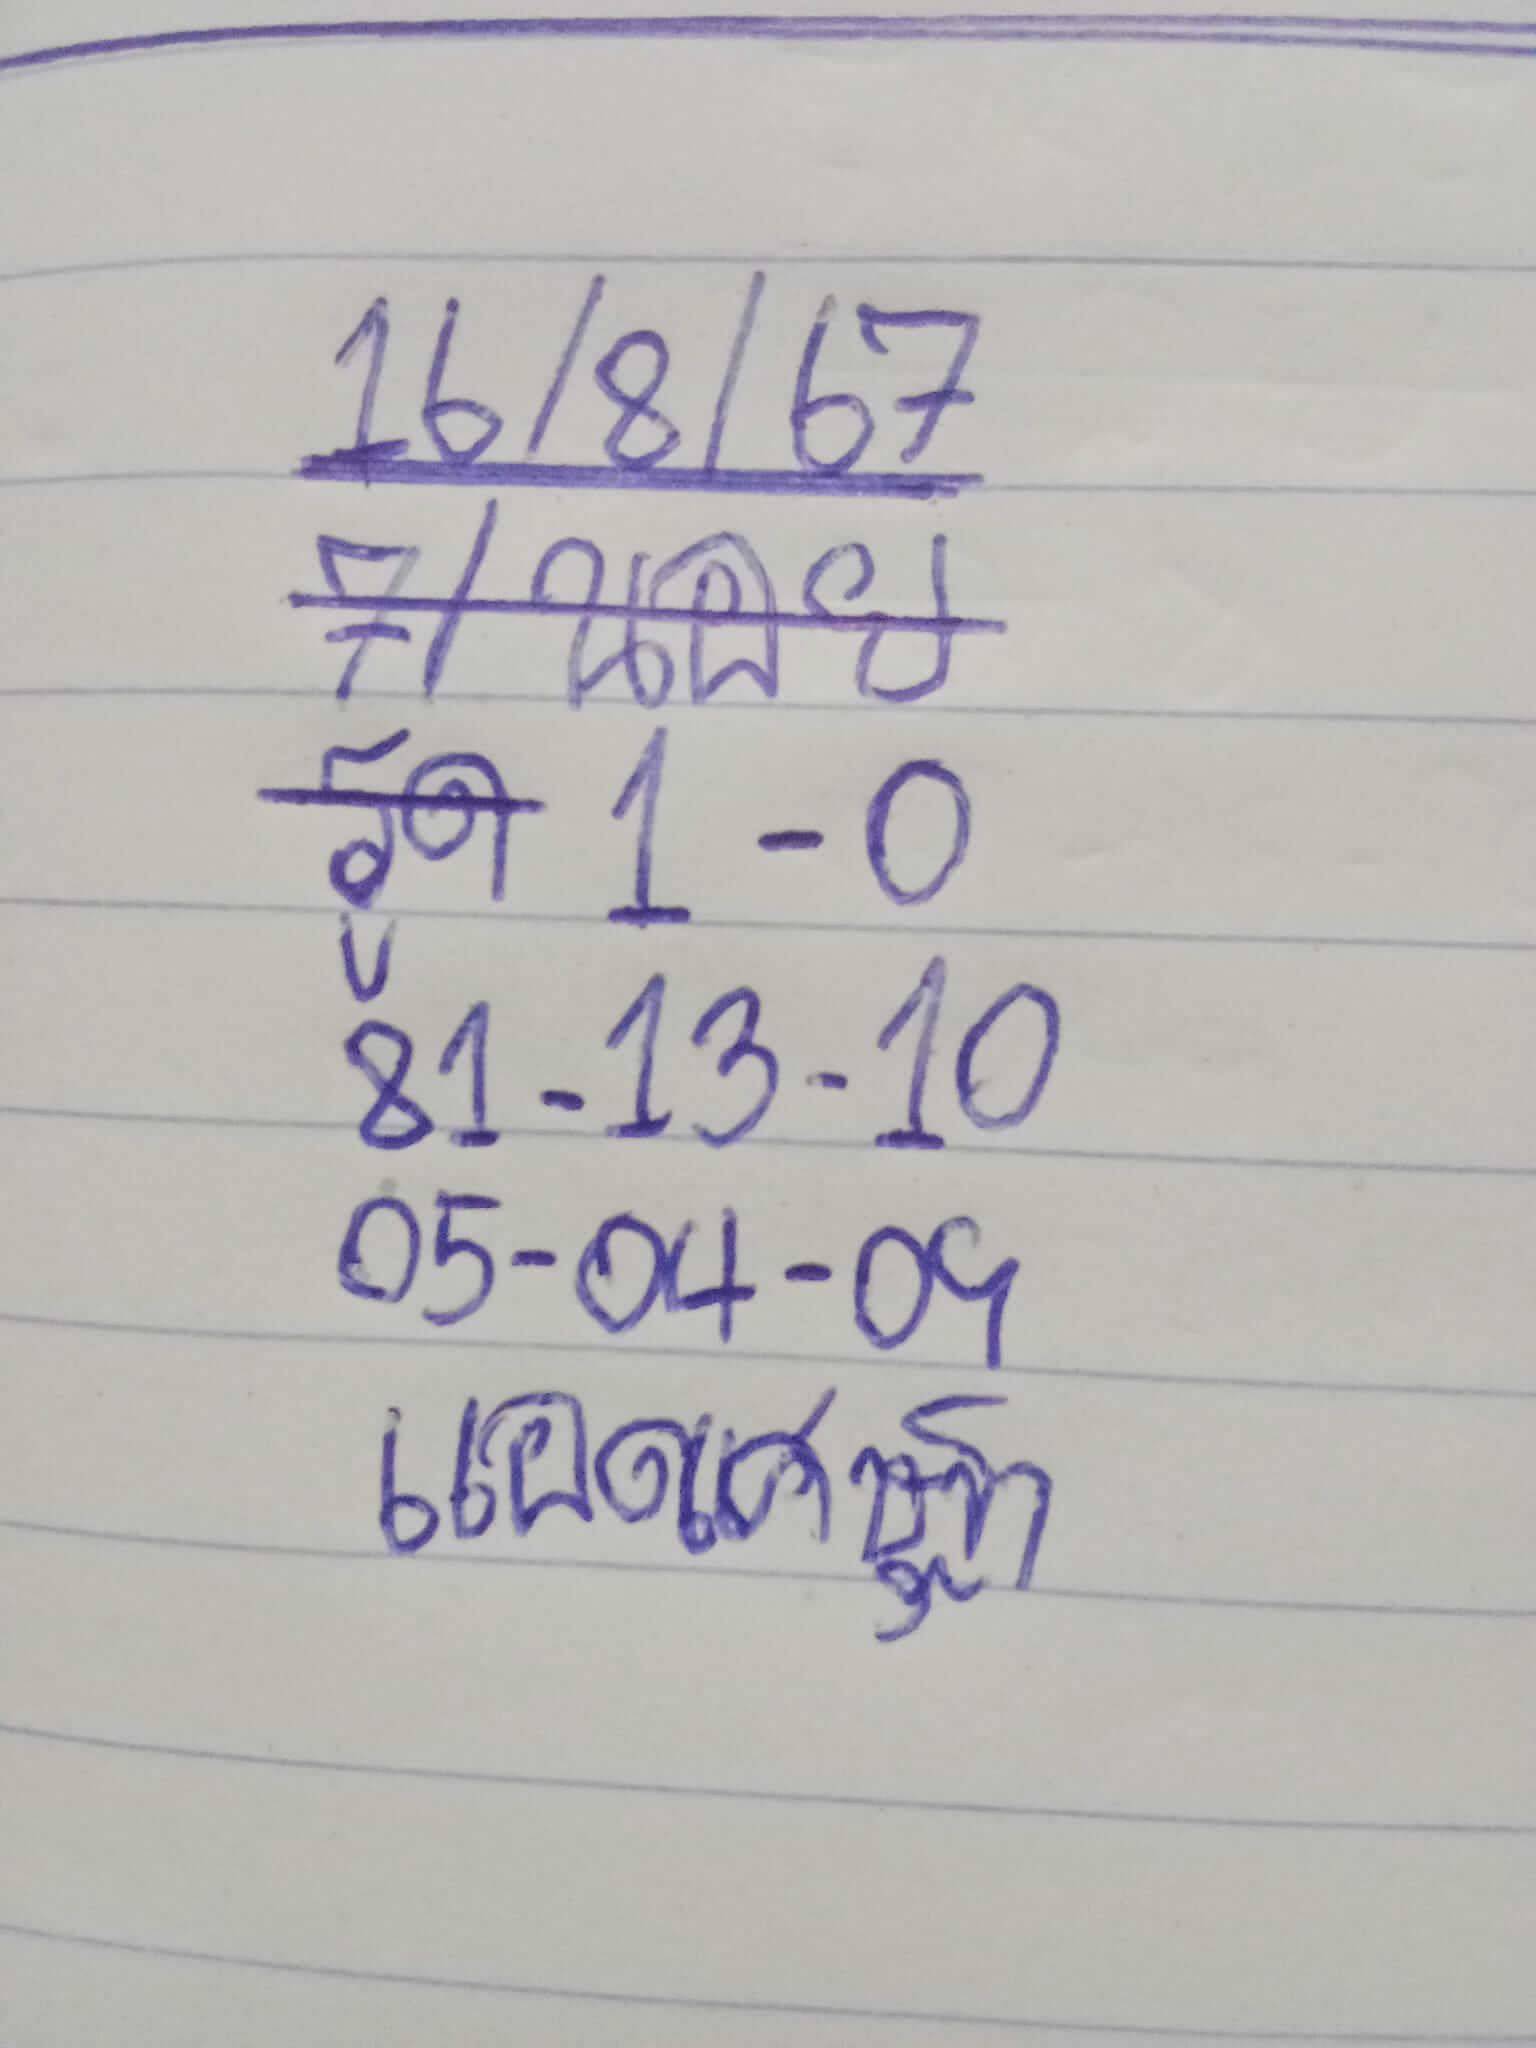 16/8/67
7/นอย
รูด 1 - 0
81 - 13 - 10
05 - 04 - 09
แอดเศษฐา